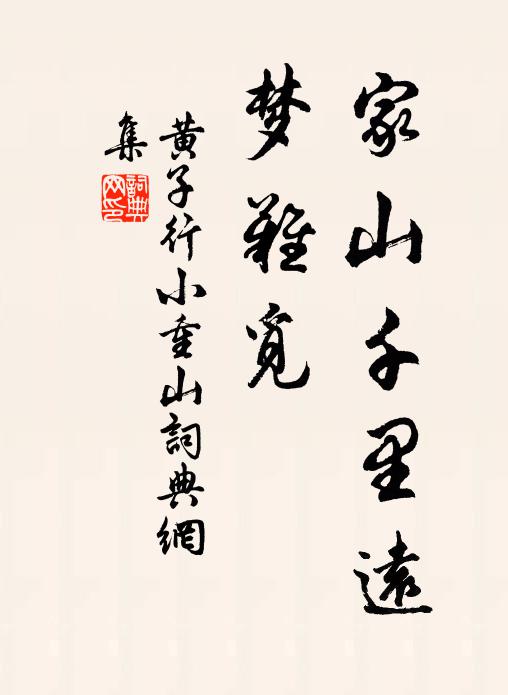 家山千里遠
梦難覓
黄子行小重山詞典網
集
詞典網印